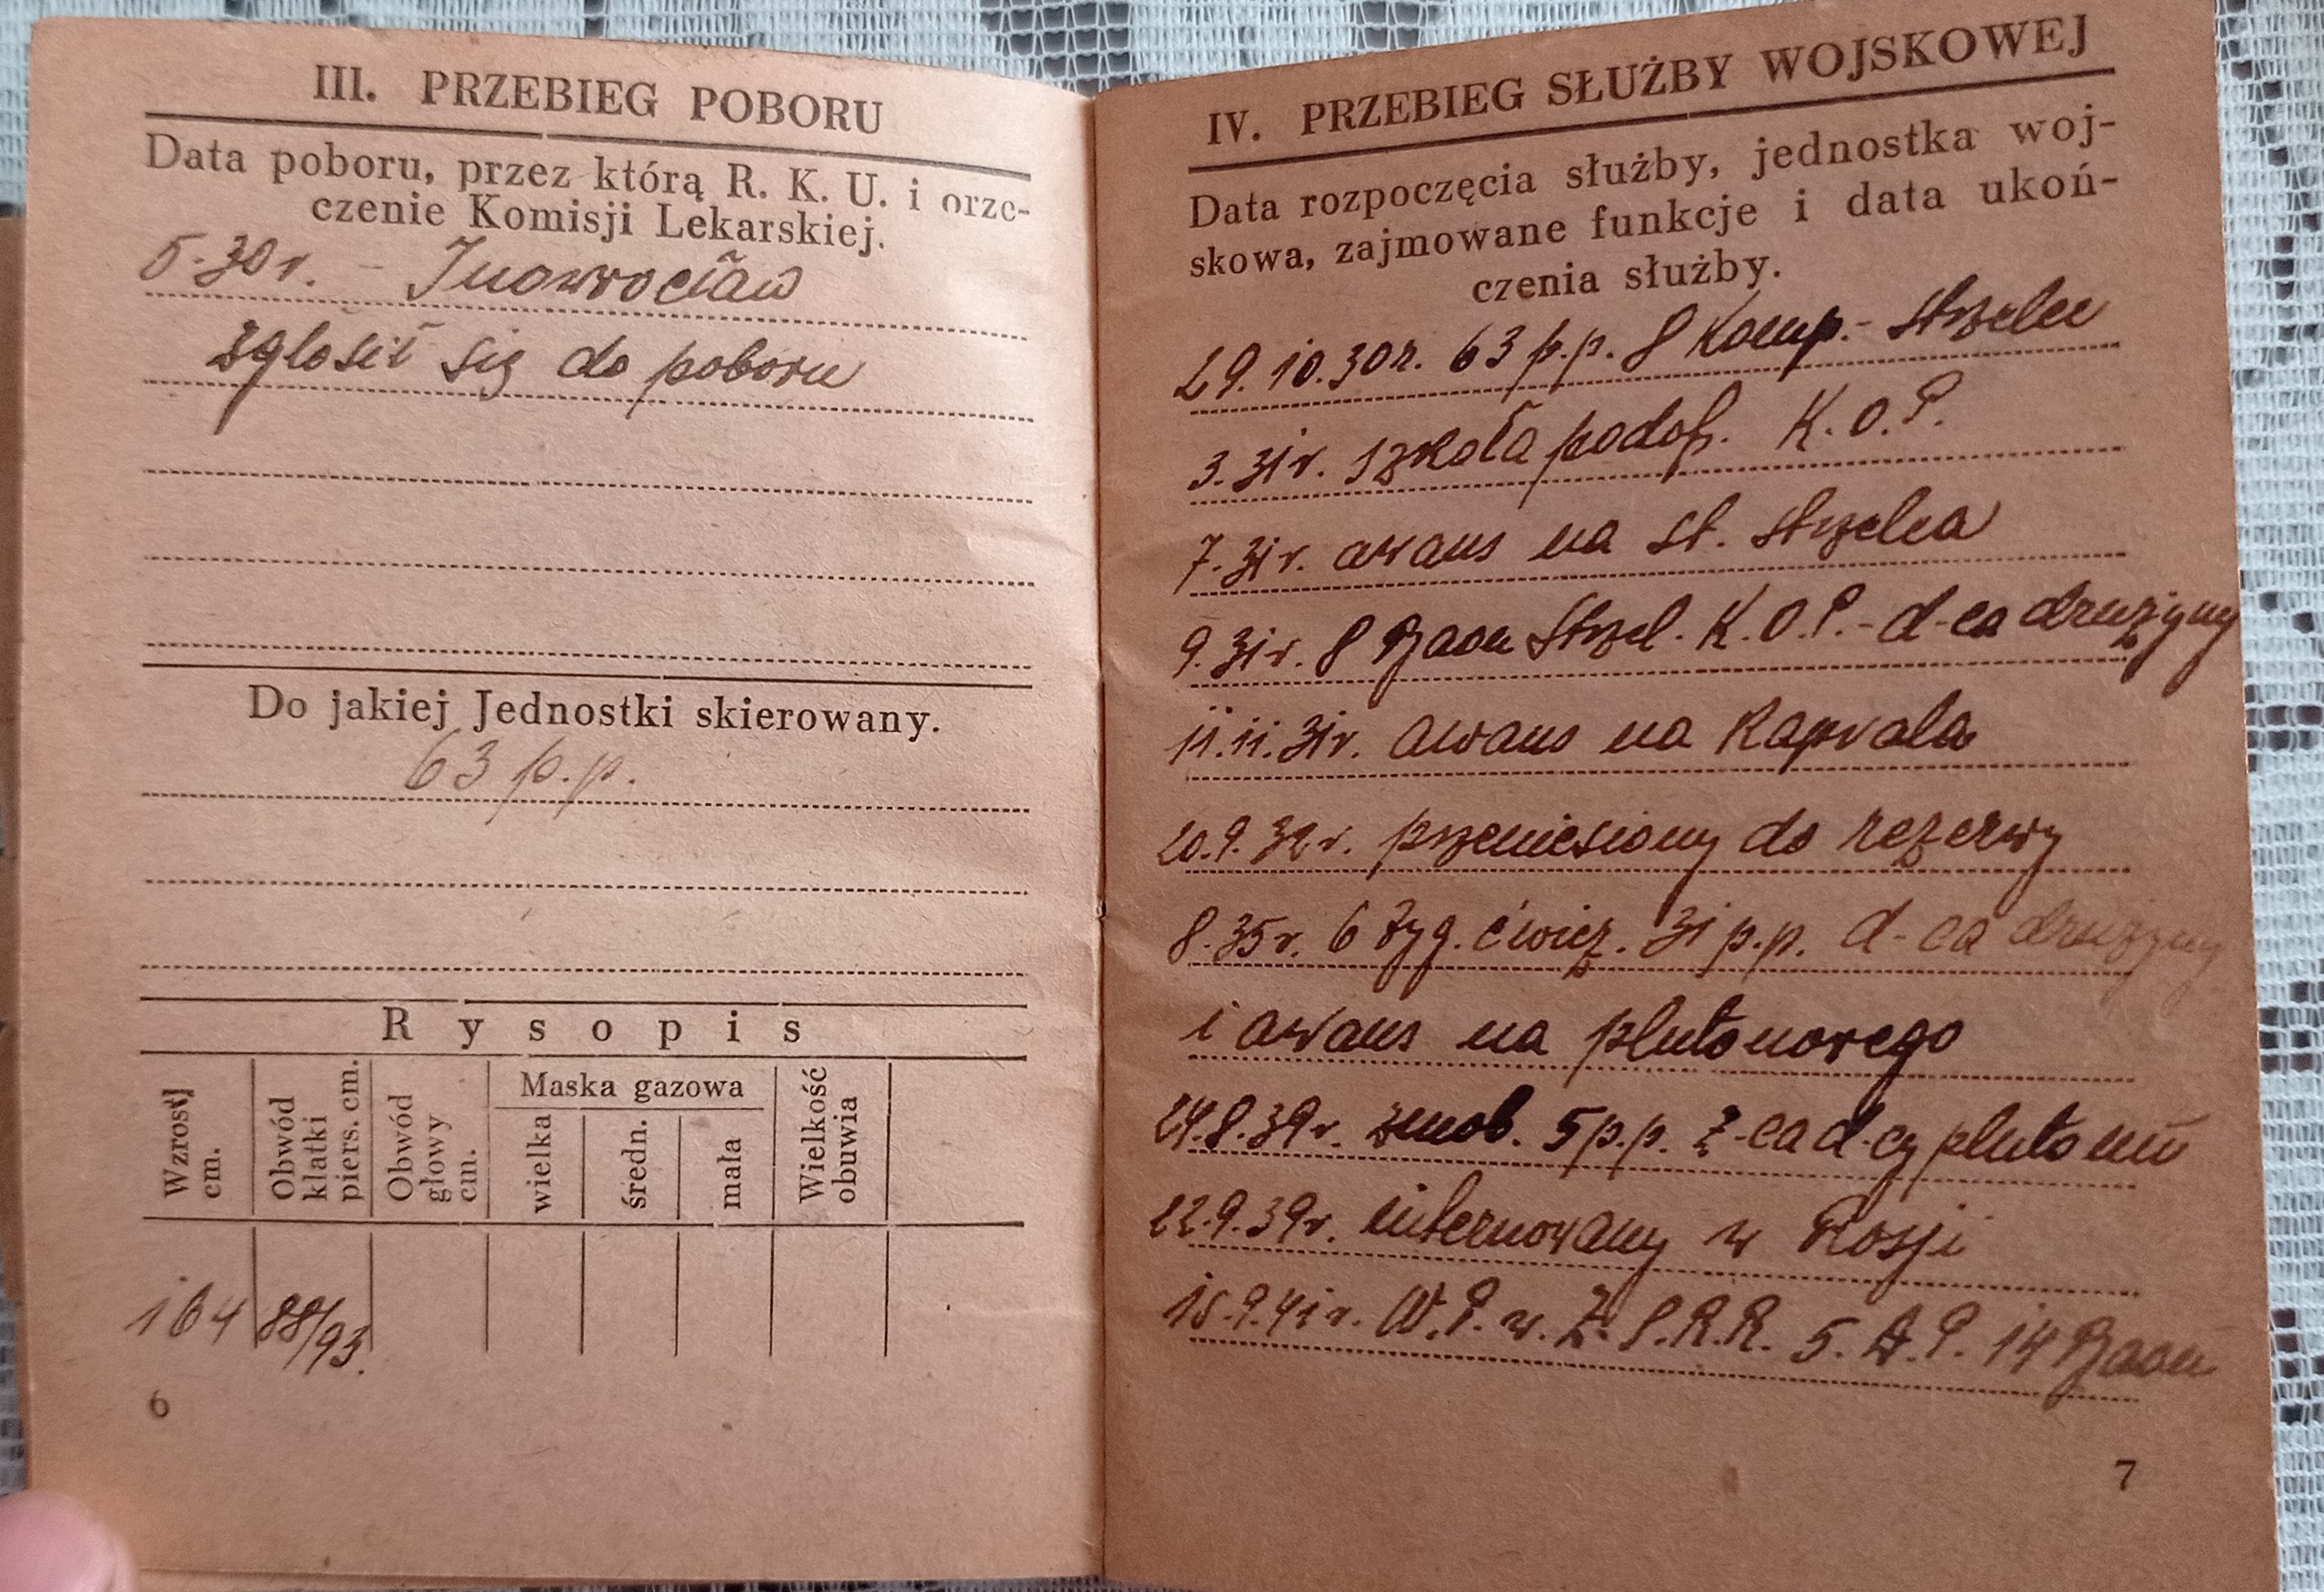 III. PRZEBIEG POBORU
Data poboru, przez którą R. K. U. i orze-
czenie Komisji Lekarskiej.
5.30 r. - Inowrocław
zgłosił się do poboru
Do jakiej Jednostki skierowany.
63 p.p.
Rysopis
Wzrost cm.
Obwód klatki piers. cm.
Obwód głowy cm.
Maska gazowa
wielka
średn.
mała
Wielkość obuwia
164 88/93.
6
IV. PRZEBIEG SŁUŻBY WOJSKOWEJ
Data rozpoczęcia służby, jednostka woj-
skowa, zajmowane funkcje i data ukoń-
czenia służby.
29.10.30r. 63 p.p. 8 Komp.- strzelec
3.31r. szkoła podof. K.O.P.
7.31r. awans na st. strzelca
9.31r. 8 Baon Strzel. K.O.P.- d-ca drużyny
11.11.31r. awans na kaprala
20.9.32r. przeniesiony do rezerwy
8.35r. 6 tyg. ćwicz. 31 p.p. d-ca drużyny
i awans na plutonowego
24.8.39r. zmob. 5 p.p. z-ca d-cy plutonu
22.9.39r. internowany w Rosji
15.9.41r. W.P. w. Z.S.R.R. 5. D.P. 14 Baon
7